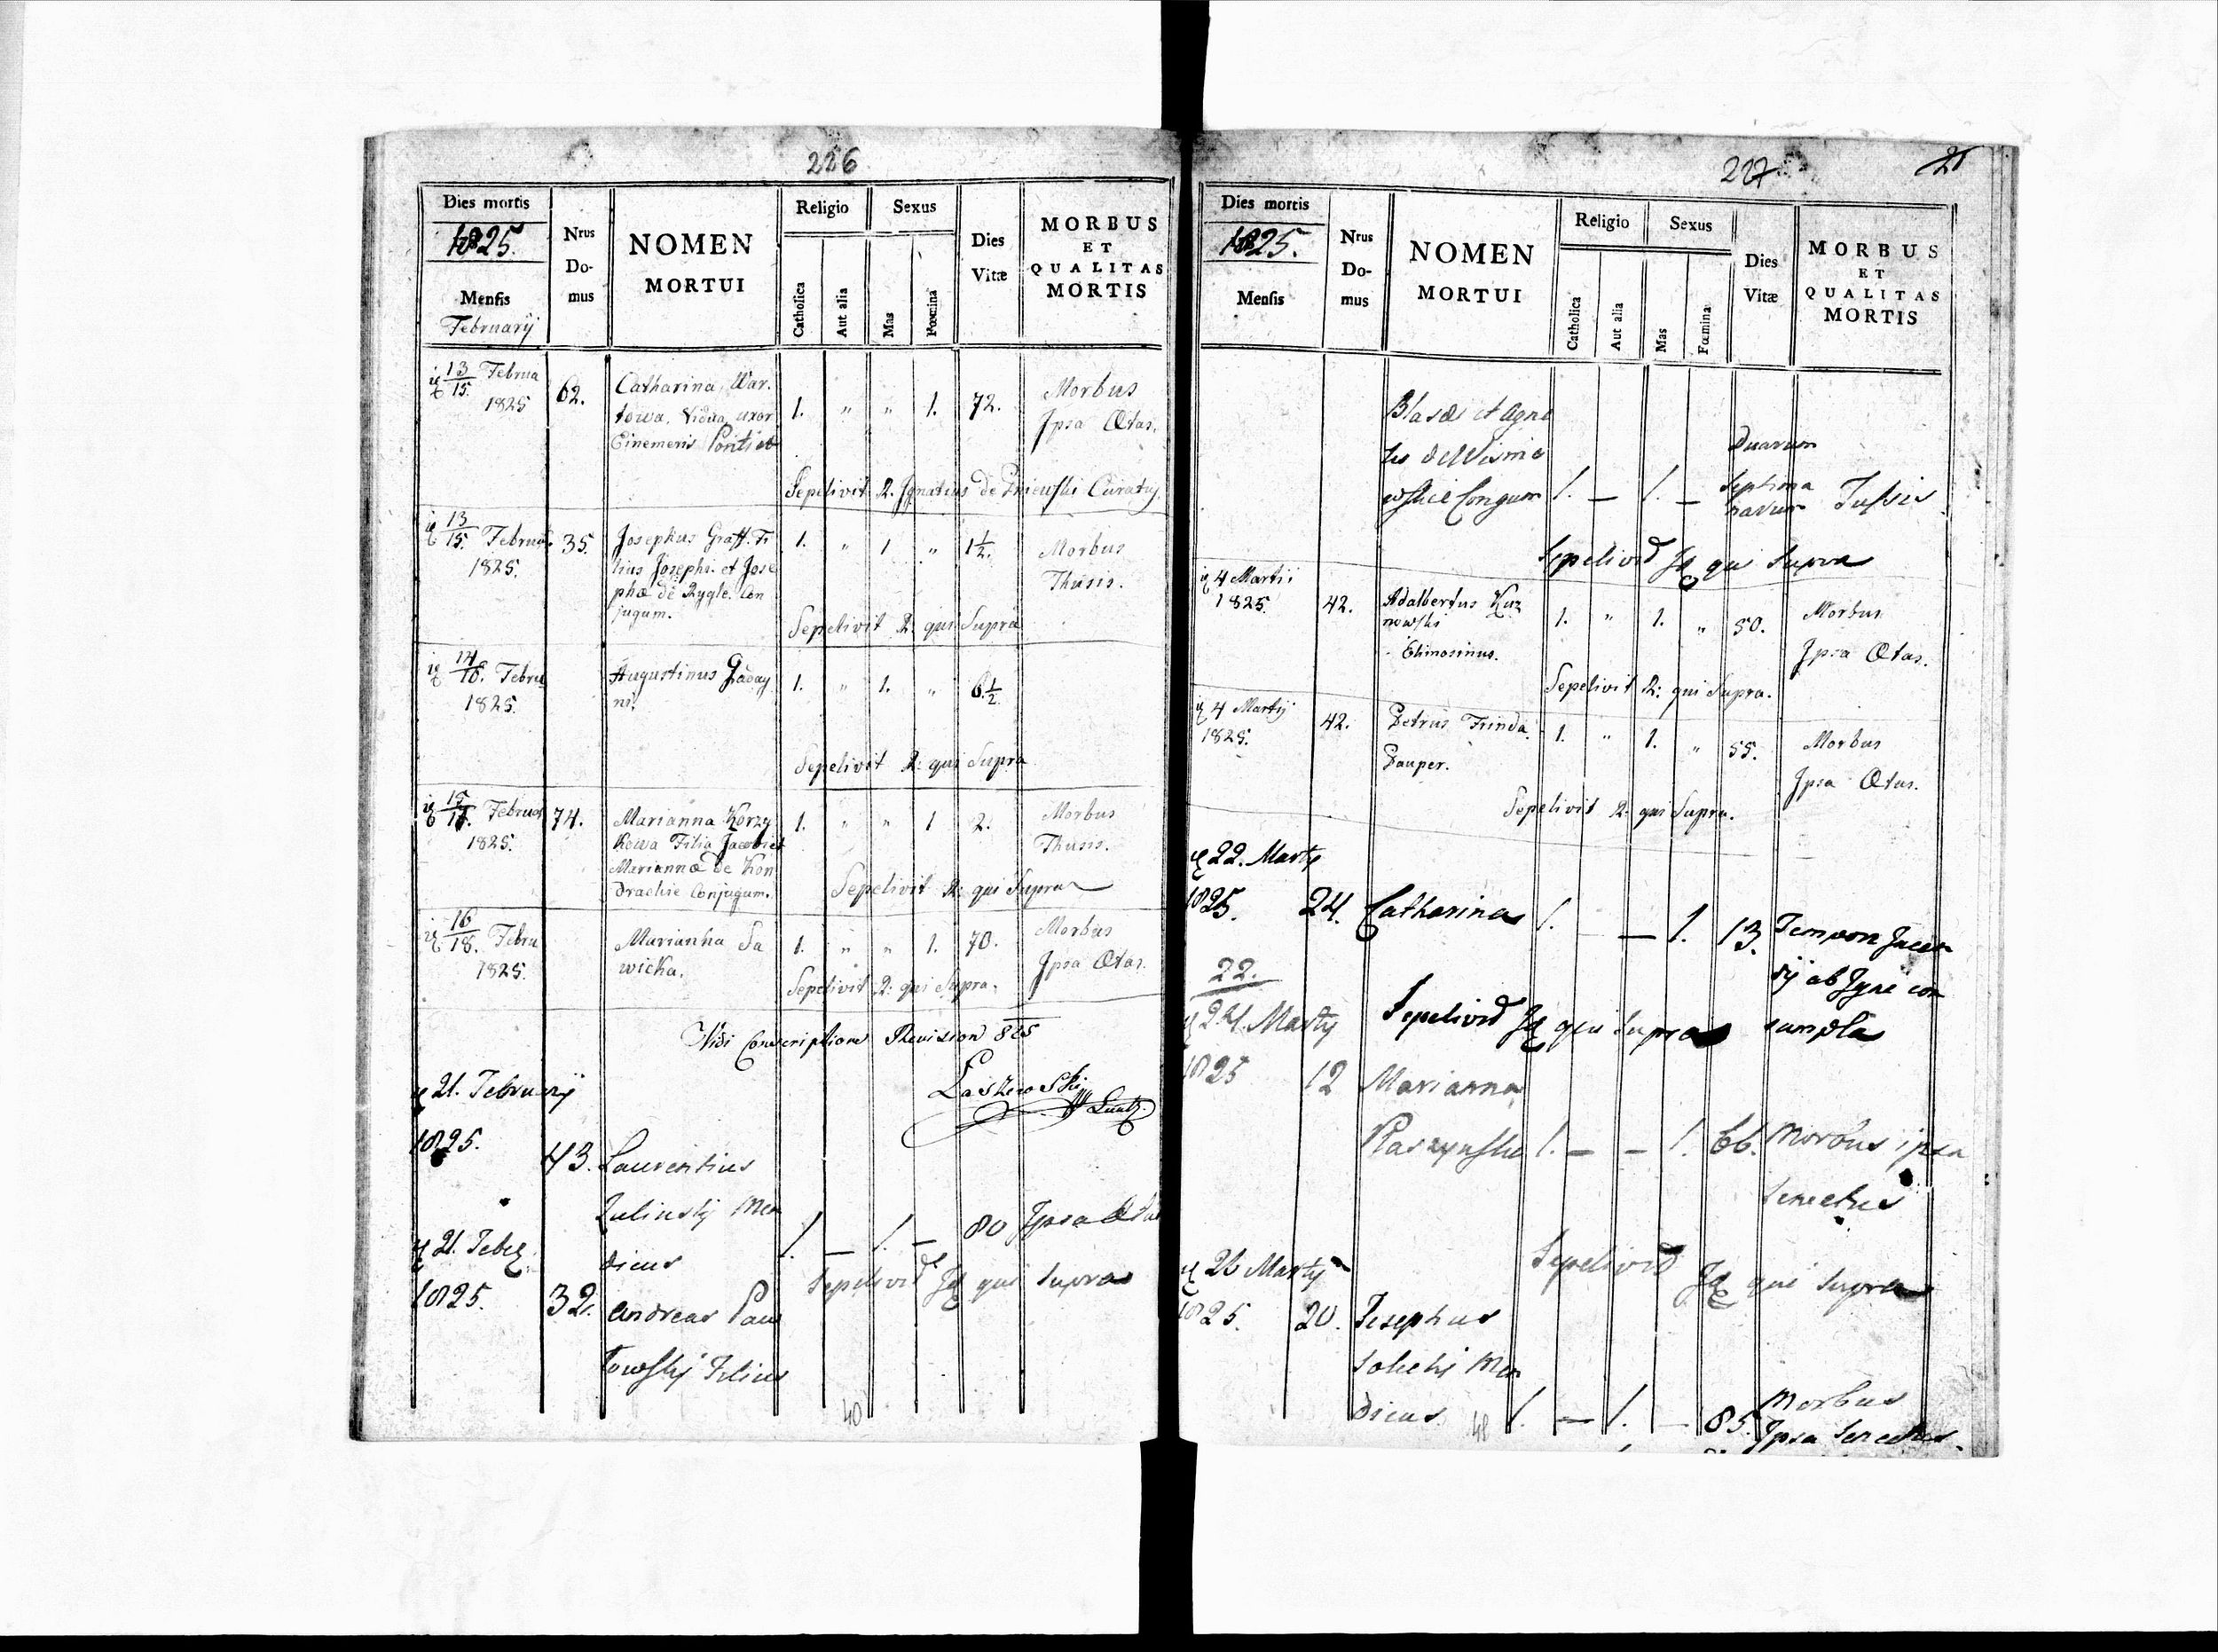 226
Dies mortis
1825.
Mensis
Februarij
Nrus
Do-
mus
NOMEN
MORTUI
Religio
Catholica
Aut alia
Sexus
Mas
Fœmina
Dies
Vitæ
MORBUS
ET
QUALITAS
MORTIS
13/15. Februa
1825
62.
Catharina War.
towa, Vidua, uxor
1. " " 1. 72.
Morbus
Ipsa Ætas.
Sepelivit R. Ignatius Curatus
13/15. Februa.
1825.
35.
Josephus Graff. Fi
lius Josephi et Jose
phæ de Rygle. Con
jugum.
1. " 1 " 1½.
Morbus
Thusis.
Sepelivit R. qui Supra
14/16. Febru
1825.
Augustinus
ni.
1. " 1. " 6½
Sepelivit R: qui Supra
Februar
1825.
74.
Marianna Korzy
kowa Filia Jacobi et
Mariannæ de Kon
drachie Conjugum.
1. " " 1 2.
Morbus
Thusis.
Sepelivit R: qui Supra
16/18. Febru
1825.
Marianna Sa
wicka.
1. " " 1. 70.
Morbus
Ipsa Ætas.
Sepelivit R: qui Supra.
Vidi Revision 825
Laszewski
21. Februarij
1825.
43.
Laurentius
Zulinskij Men
dicus
1. — 1. — 80
Ipsa Æta
Sepelivid Id qui supra
21. Febr
1825.
32.
Andreas Paw
lowskij Filius
40
227
21
Dies mortis
1825.
Mensis
Nrus
Do-
mus
NOMEN
MORTUI
Religio
Catholica
Aut alia
Sexus
Mas
Fœmina
Dies
Vitæ
MORBUS
ET
QUALITAS
MORTIS
Blasæi et Agne
1. — 1. —
duarum
Septima
narum
Tussis
Sepelivid Id qui supra
4 Martii
1825.
42.
Adalbertus Kuz
nowski
Elimosinus.
1. " 1. " 50.
Morbus
Ipsa Ætas.
Sepelivit R: qui Supra.
4 Martij
1825.
42.
Petrus Frinda.
Pauper.
1. " 1. " 55.
Morbus
Ipsa Ætas.
Sepelivit R: qui Supra.
22. Martij
1825.
24.
Catharina
1. — 1. 13.
ab Igne con
sumpta
Sepelivid Id qui supra
22.
24. Martij
1825
12
Marianna
1. — — 1. 66.
Morbus ipsa
senectus
Sepelivid Id qui supra
26 Martij
1825.
20.
Josephus
Men
dicus.
1. — 1. — 85.
Morbus
Ipsa senectus.
48